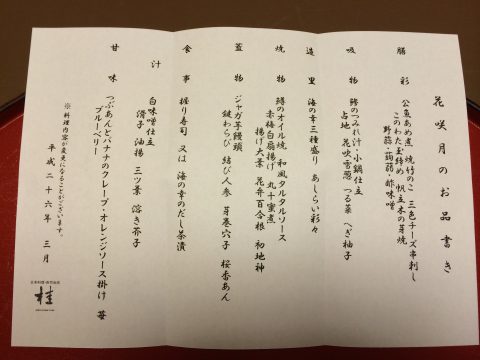 花咲月のお品書き
膳彩 公魚あめ煮 焼竹のこ 三色チーズ串刺し
このわた玉締め 帆立木の芽焼
野蒜・蒟蒻・酢味噌
吸物 鯵のつみれ汁・小鍋仕立
占地 花吹雪葱 つる菜 へぎ柚子
造里 海の幸三種盛り あしらい彩々
焼物 鰆のオイル焼 和風タルタルソース
赤梅白扇揚げ 丸十蜜煮
揚げ大葉 花弁百合根 初地神
蓋物 ジャガ芋饅頭
鍵わらび 結び人参 芽巻穴子 桜香あん
食事 握り寿司 又は 海の幸のだし茶漬
汁 白味噌仕立
滑子 油揚 三ツ葉 溶き芥子
甘味 つぶあんとバナナのクレープ・オレンジソース掛け 苺
ブルーベリー
※料理内容が変更になることがございます。
平成二十六年 三月
桂